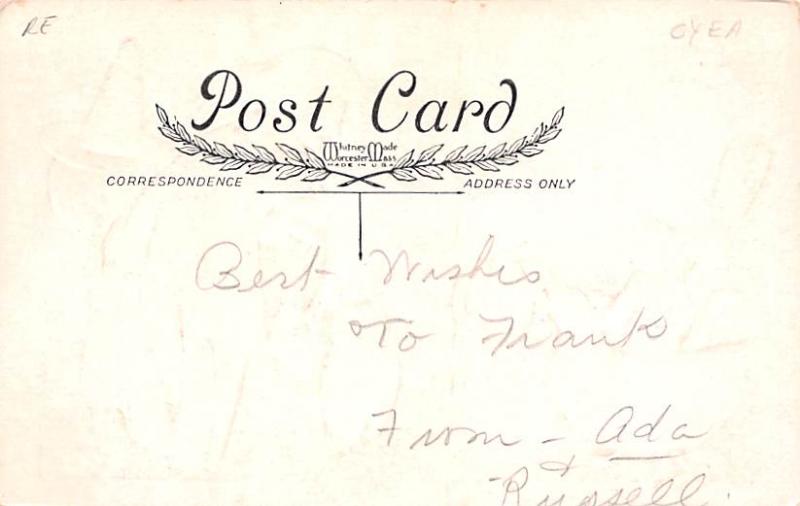 RE
CYEA
Post Card
Whitney Made
Worcester Mass
MADE IN U.S.A.
CORRESPONDENCE
ADDRESS ONLY
Best Wishes
To Frank
From - Ada
+
Russell.